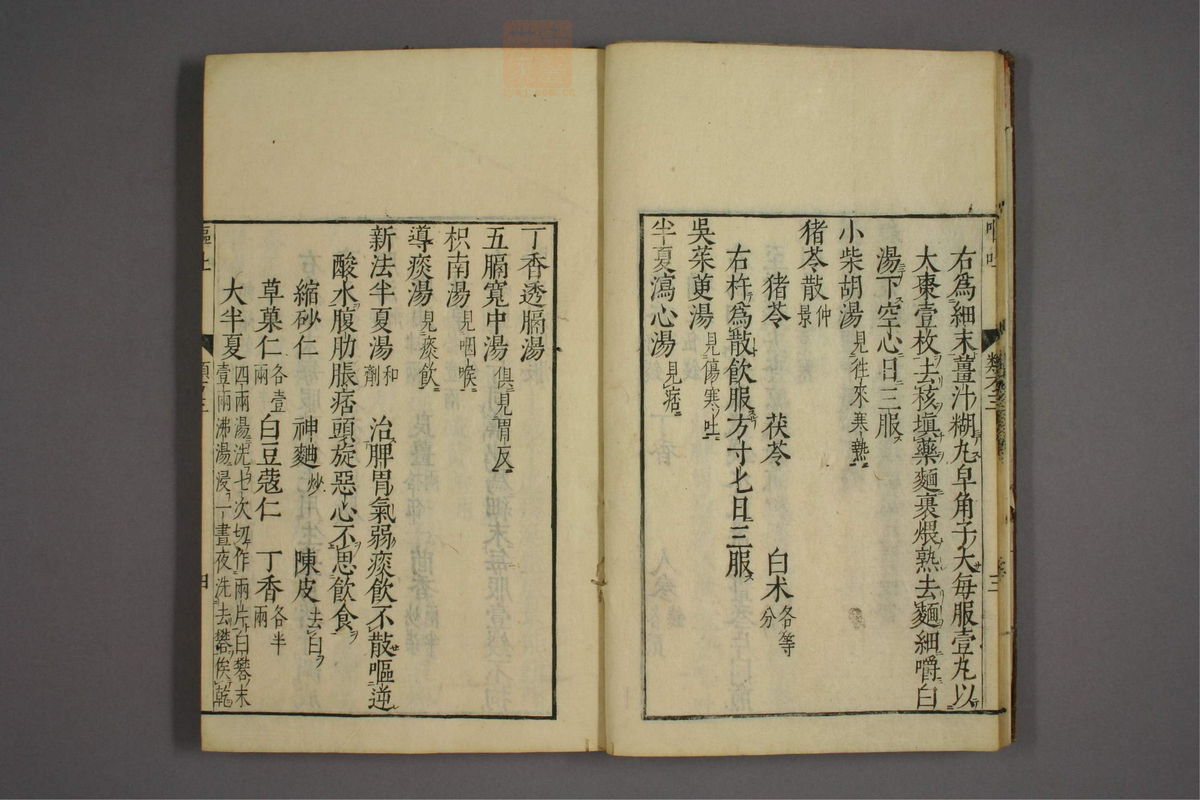 右為細末薑汁糊丸皁角子大每服壹丸以
大棗壹枚去核塡藥麵裹煨熟去麵細嚼白
湯下空心日三服
小柴胡湯見往來寒熱
猪苓散仲景
猪苓 茯苓 白术各等分
右杵為散飲服方寸匕日三服
吳茱萸湯見傷寒吐
半夏瀉心湯見痞
丁香透膈湯
五膈寬中湯俱見胃反
枳南湯見咽喉
導痰湯見痰飲
新法半夏湯和劑 治脾胃氣弱痰飲不散嘔逆
酸水腹肋脹痞頭旋惡心不思飲食
縮砂仁 神麯炒 陳皮去白
草菓仁各壹兩 白豆蔻仁 丁香各半兩
大半夏四兩湯洗七次切作兩片白礬末壹兩沸湯浸一晝夜洗去礬俟乾